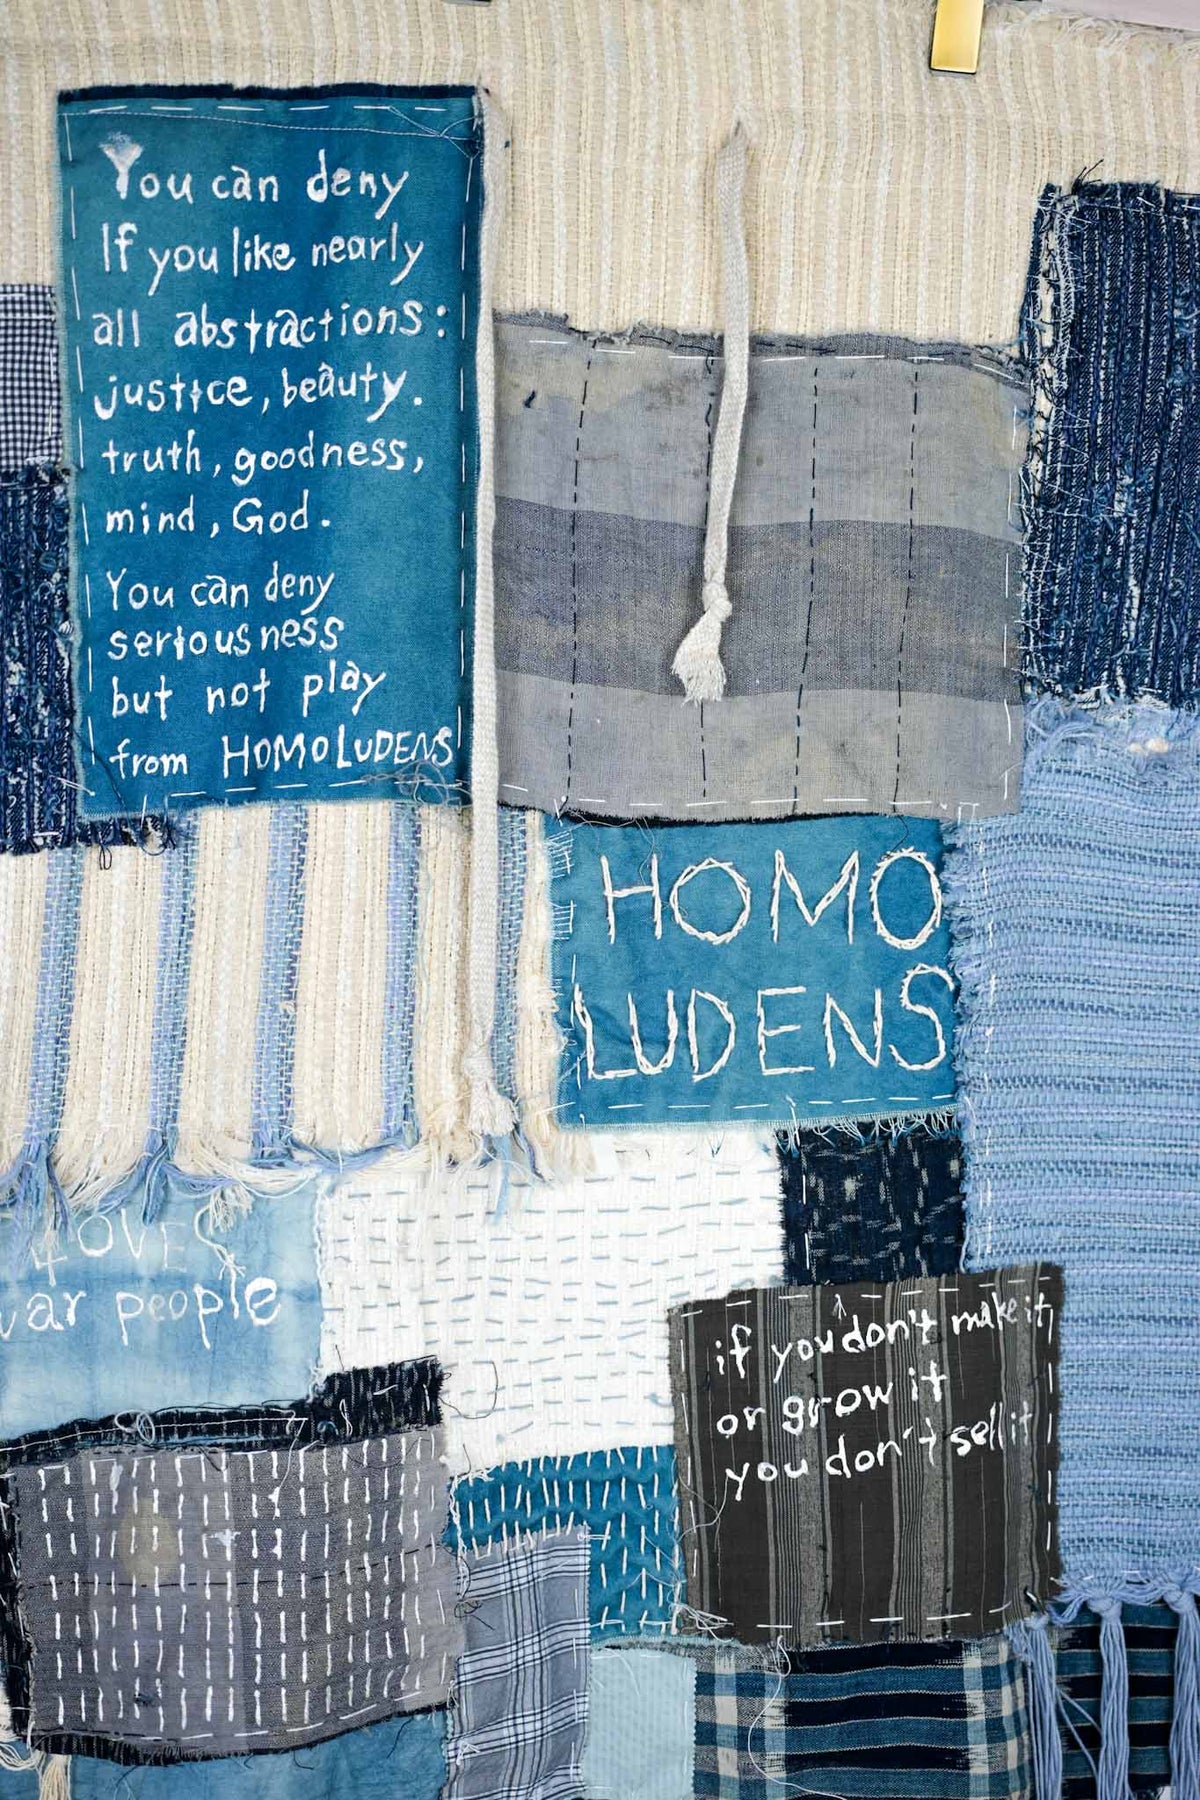 You can deny
If you like nearly
all abstractions:
justice, beauty.
truth, goodness,
mind, God.
You can deny
seriousness
but not play
from HOMO LUDENS
HOMO
LUDENS
LOVES
people
if you don't make it
or grow it
you don't sell it